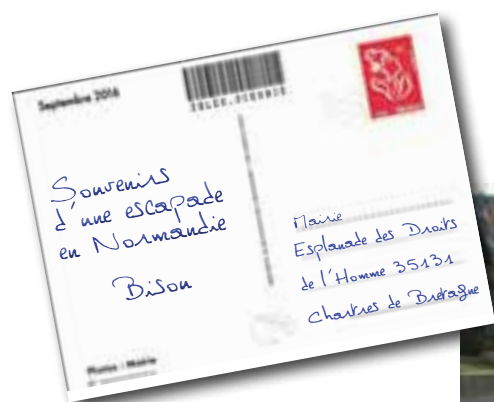 Septembre 2016
Souvenirs
d'une escapade
en Normandie
Bison
Mairie
Esplanade des Droits
de l'Homme 35131
Chartres de Bretagne
Photos : Mairie